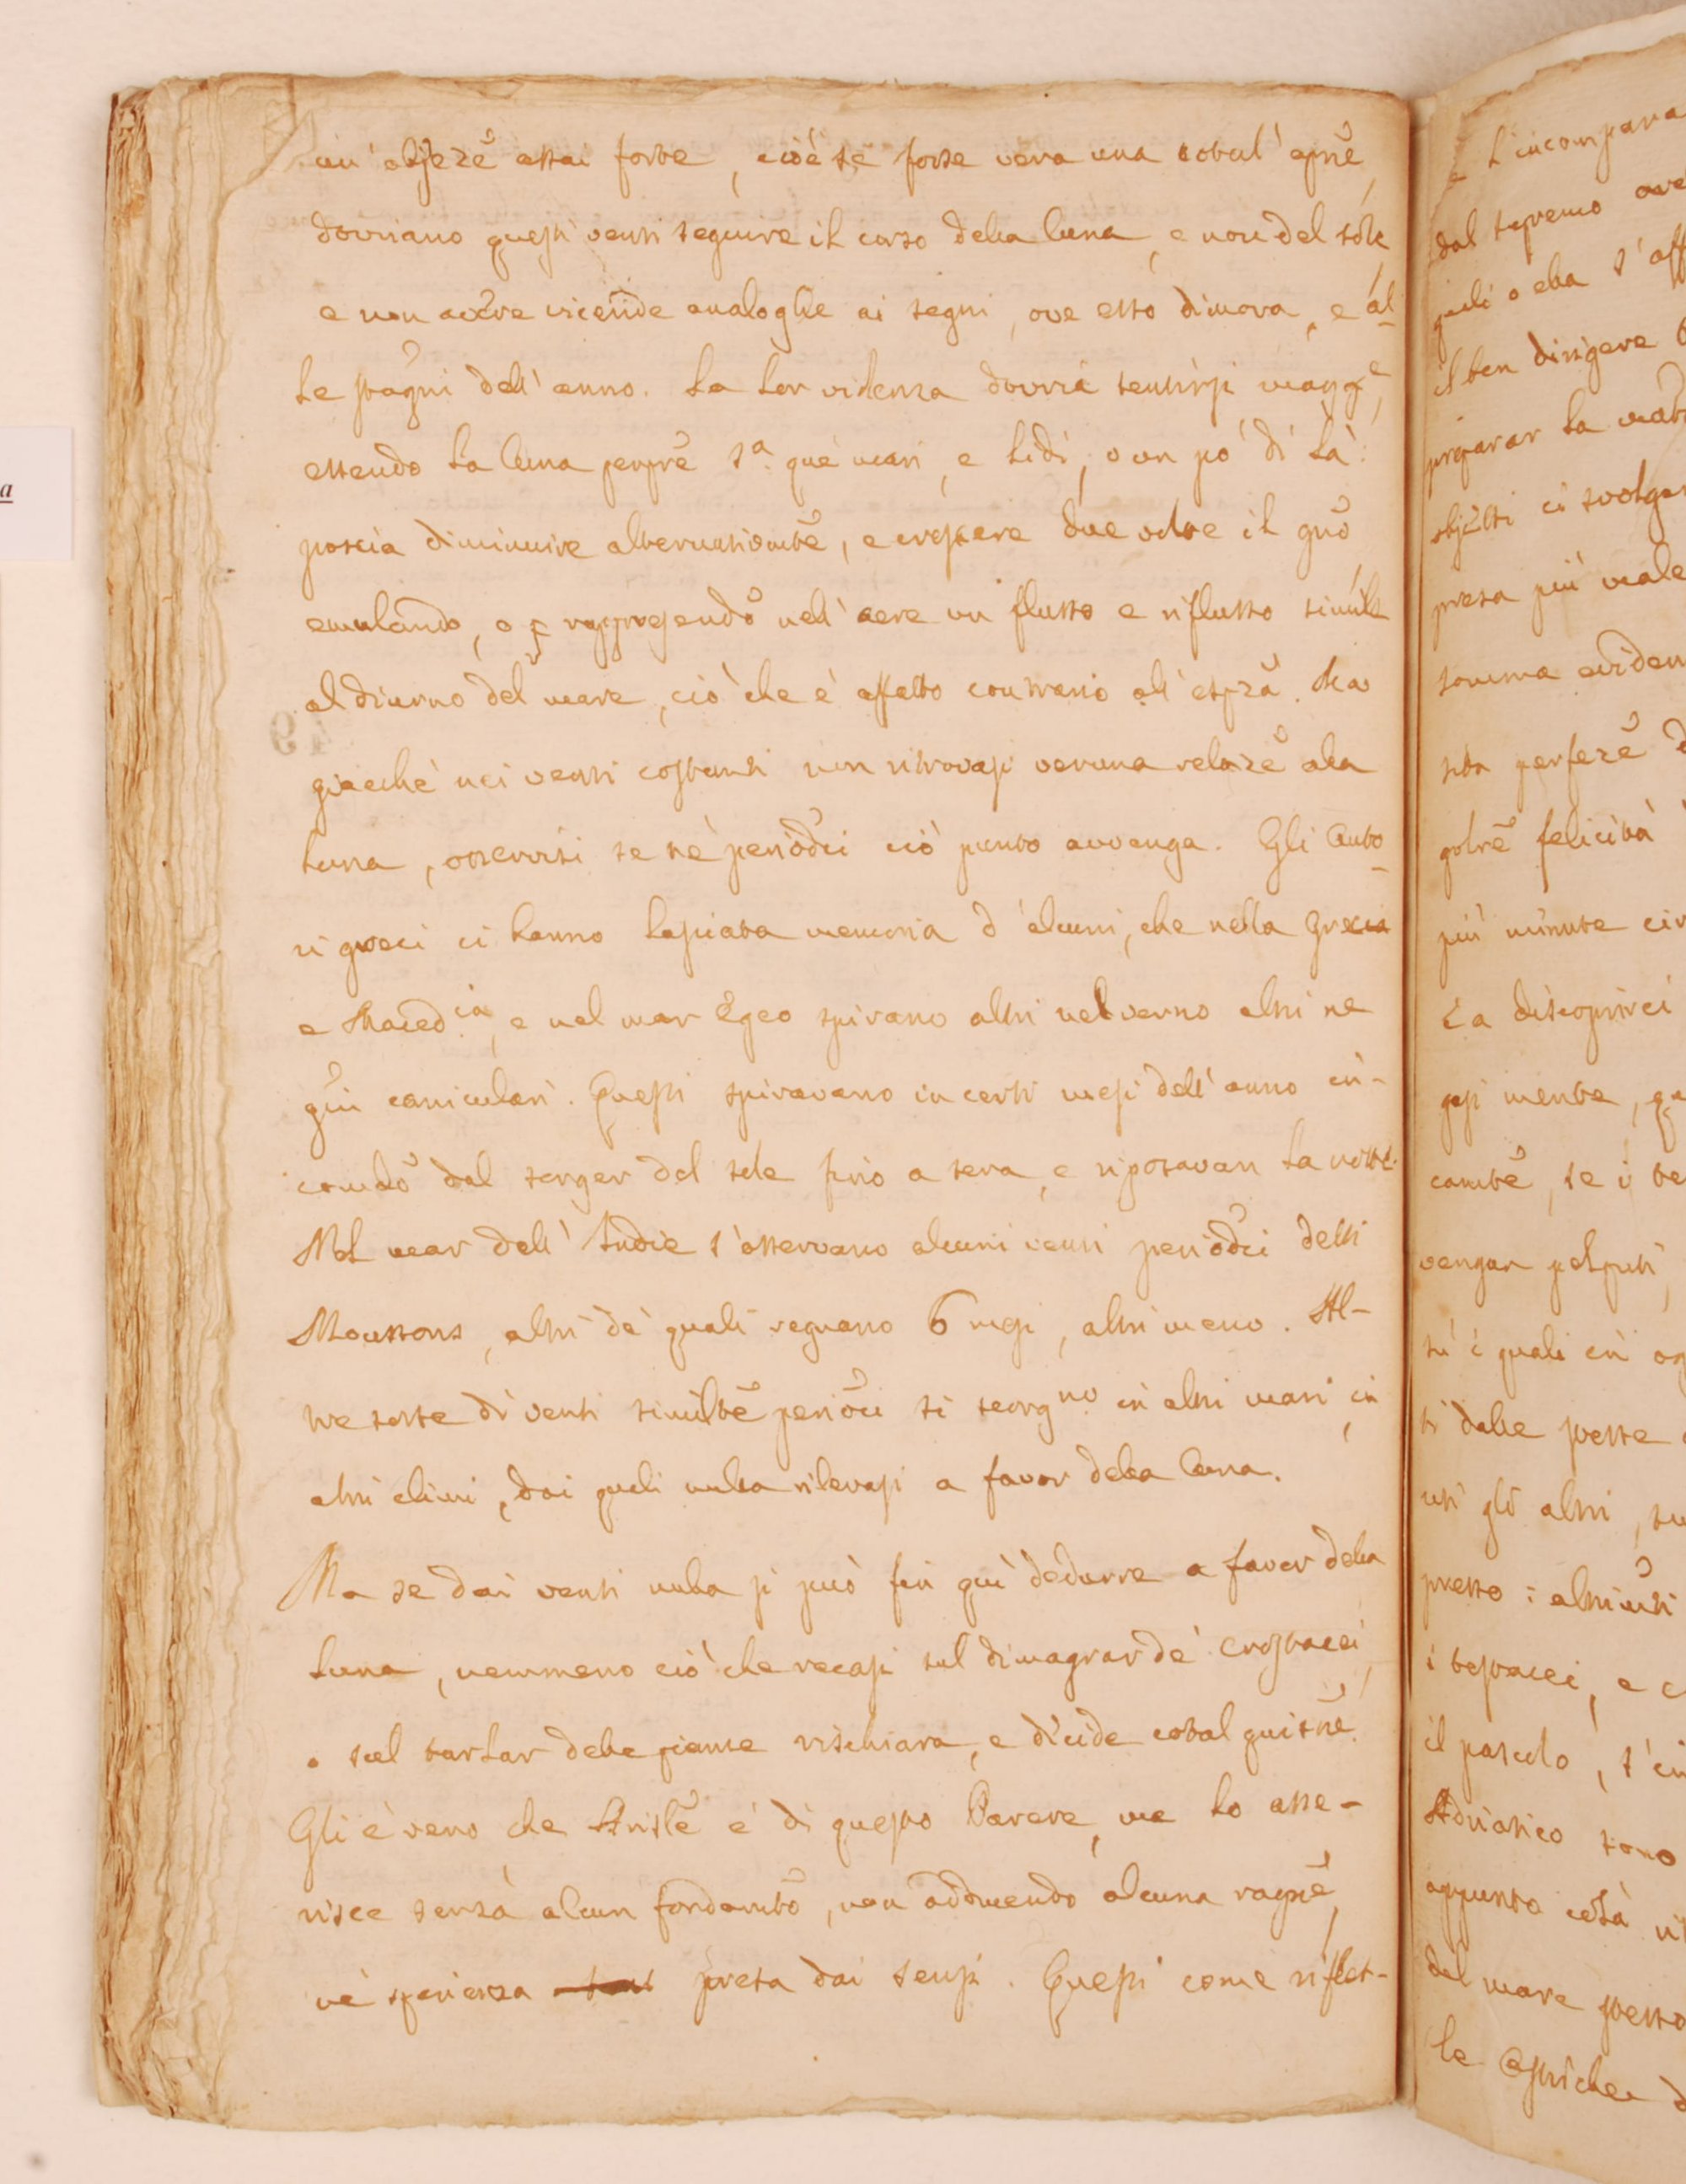 un' objezē assai forte, cioè se forse vera una cotal' opnē,
dovriano questi venti seguire il corso della luna, e non del sole,
e non avere vicende analoghe ai segni, ove esso dimora, e al-
le stagni dell' anno. La lor violenza dovria sentirsi magge,
essendo la luna perpre sa. que' mari, e lidi, o un pò di là:
poscia diminuire alternativmtē, e crescere due volte il gno,
emulando, o rappresendo nell' aere un flusso e riflusso simile
al diurno del mare, ciò che è affatto contrario all' esprza. Ma
giacchè nei venti costanti non ritrovasi veruna relazē alla
luna, osservisi se ne' periodci ciò punto avvenga. Gli Auto-
ri greci ci hanno lasciata memoria d' alcuni, che nella Grecia
e Macedia, e nel mar Egeo spirano altri nel verno altri ne
gni caniculari. Questi spiravano in certi mesi dell' anno in-
comdo dal sorger del sole fino a sera, e riposavan la notte.
Nel mar dell' Indie s' osservano alcuni venti periodci detti
Moussons, altri de' quali regnano 6 mesi, altri meno. Al-
tre sorte di venti similtē perioci si scorgno in altri mari, in
altri climi, dai quali nulla rilevasi a favor della luna.
Ma se dai venti nulla si può fin quì dedurre a favor della
luna, nemmeno ciò che recasi sul dimagrar de' crostacei,
o sul tarlar delle piante rischiara, e dicide cotal quistnē.
Gli è vero, che Aristle è di questo Parere, ma lo asse-
risce senza alcun fondamtō, non adducendo alcuna ragnē,
nè sperienza presa dai sensi. Questi come riflet-
L' incompara
dal supremo
quali o ella s' aff
il ben dirigere
preparar la
objetti ci svolge
presa più male
somma eviden
sta perfezē
felicità
più minute cir
La discoprirci
mente,
camtē, se i
vengan
su i quali in og
ti dalle stesse
gli altri, su
presso: altrimti
i testacei, e c
il pascolo, s' in
Adriatico sono
appunto colà
del mare stesso
le Ostriche d